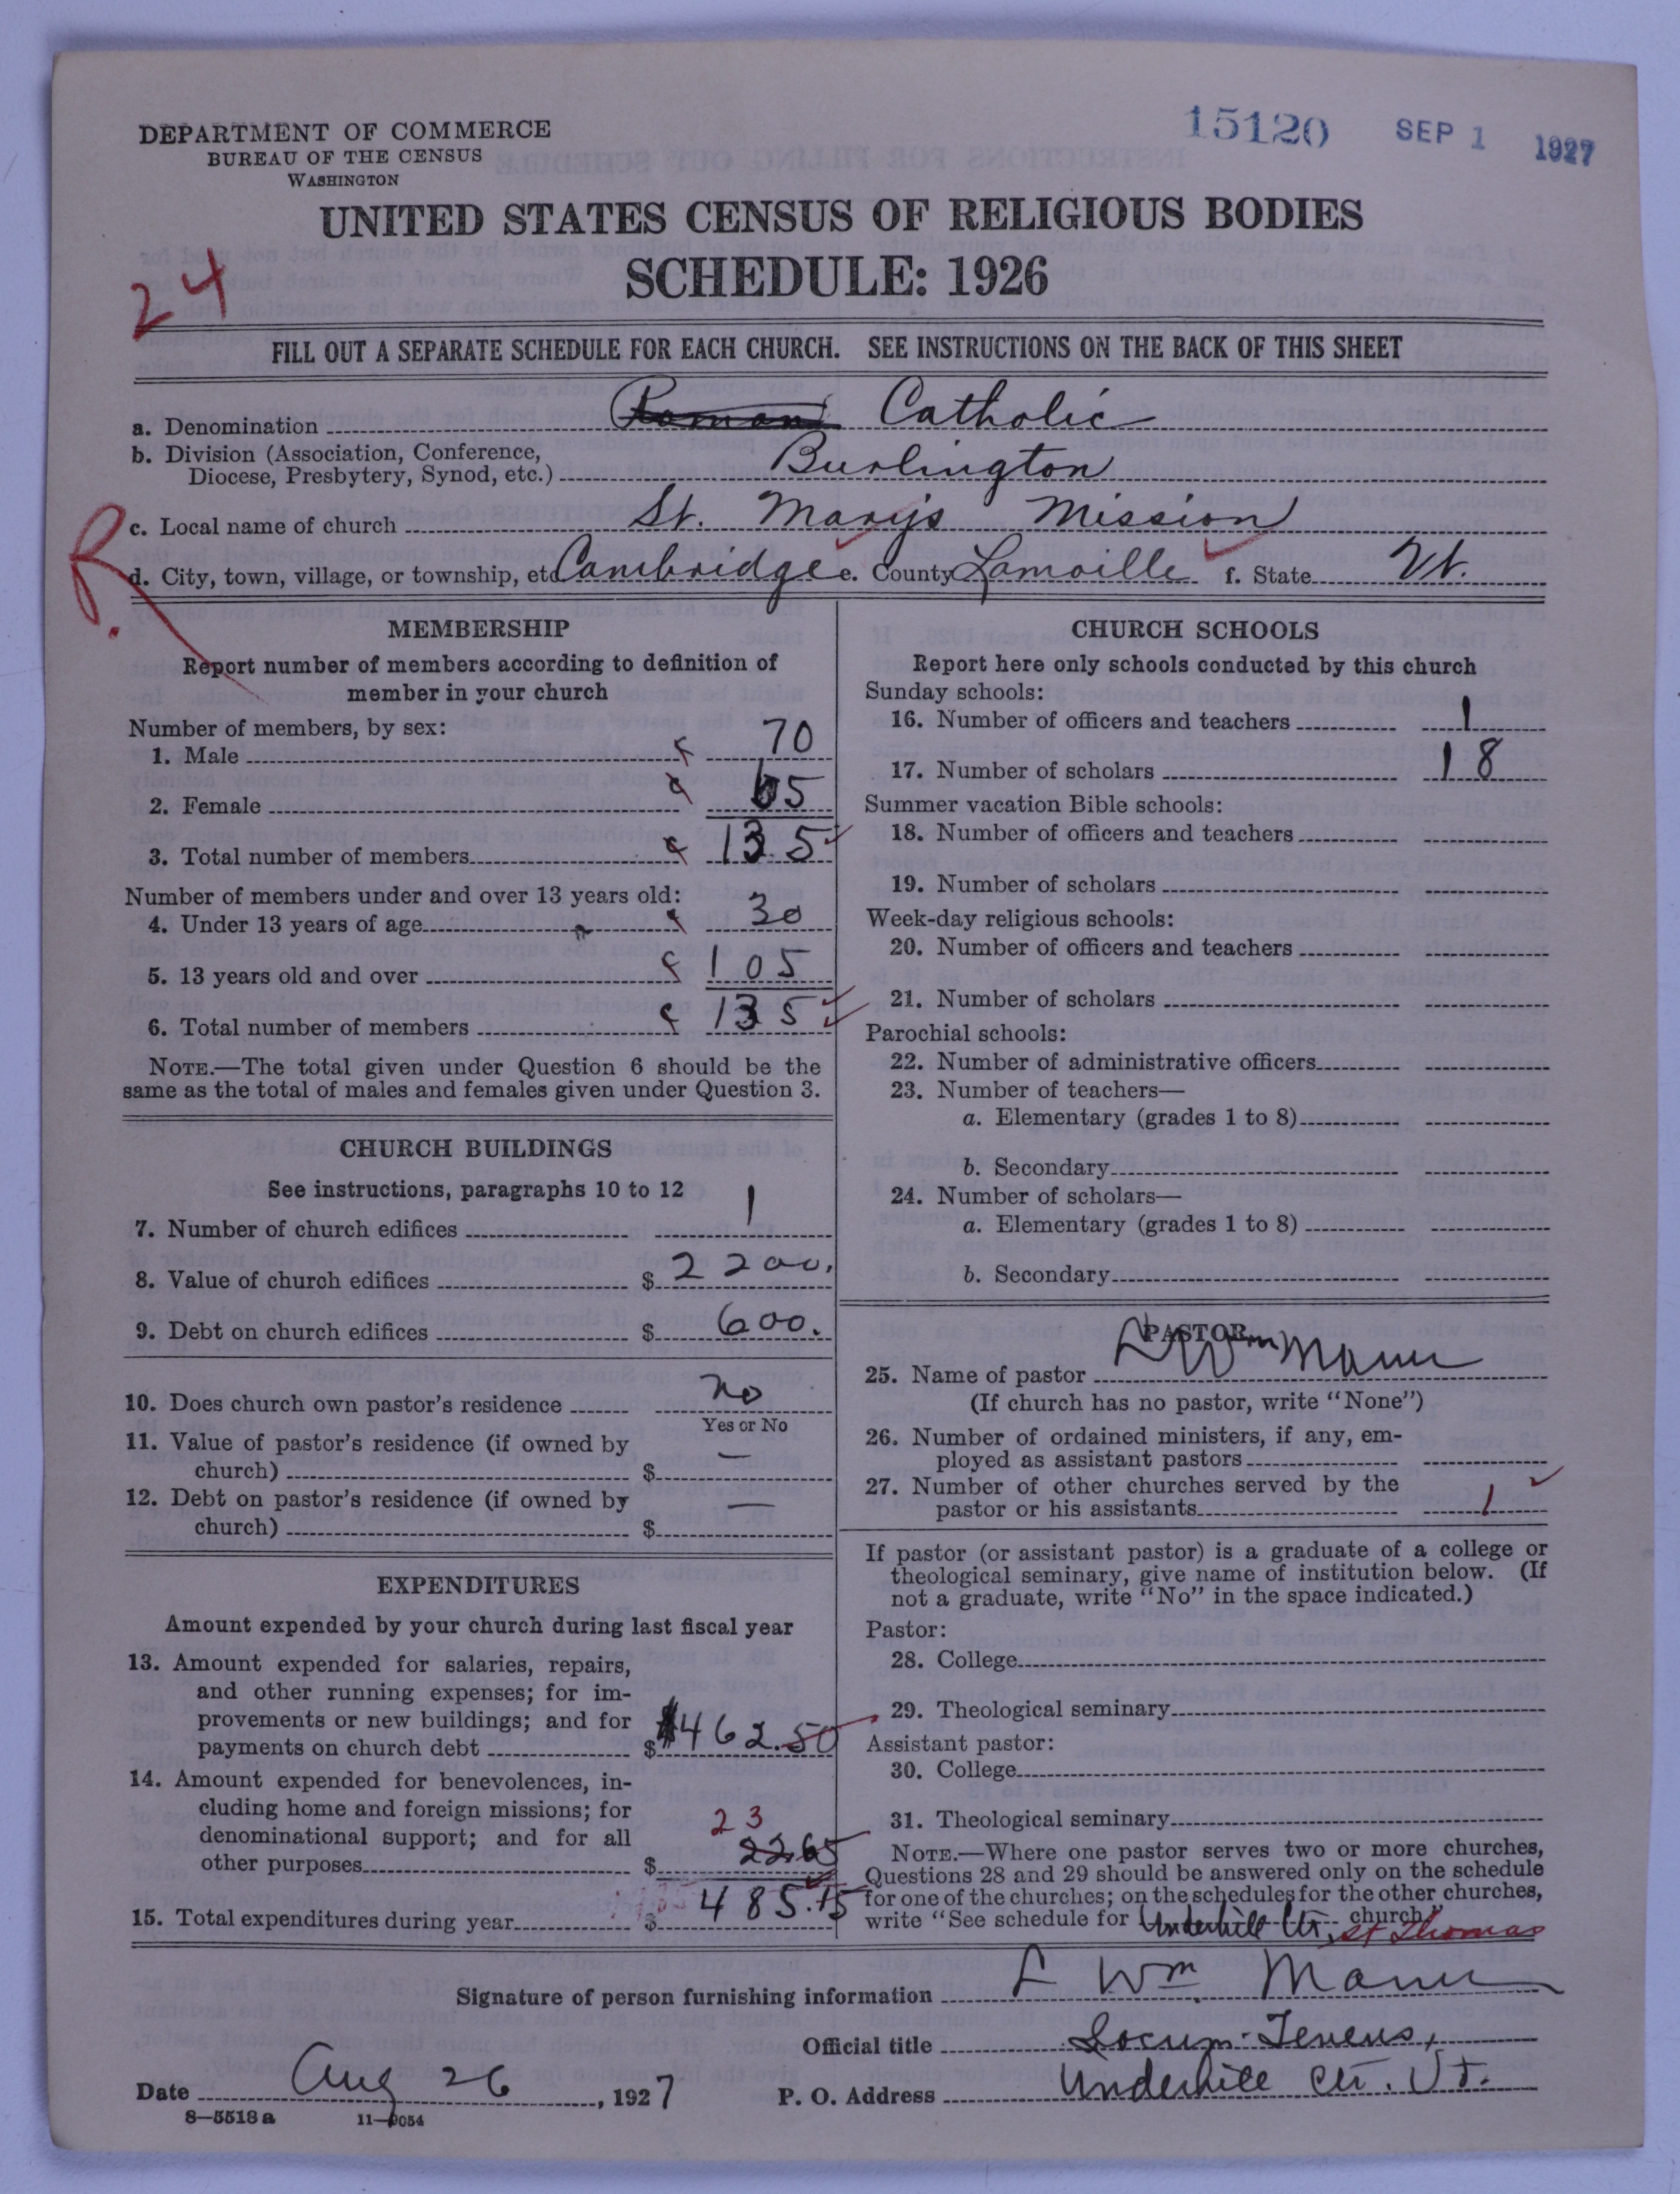 15120 SEP 1 1927
DEPARTMENT OF COMMERCE
BUREAU OF THE CENSUS
WASHINGTON
UNITED STATES CENSUS OF RELIGIOUS BODIES
SCHEDULE: 1926
24
FILL OUT A SEPARATE SCHEDULE FOR EACH CHURCH. SEE INSTRUCTIONS ON THE BACK OF THIS SHEET
a. Denomination Roman Catholic
b. Division (Association, Conference,
Diocese, Presbytery, Synod, etc.) Burlington
c. Local name of church St. Marys Mission
R.
d. City, town, village, or township, etc Cambridge e. County Lamoille f. State Vt.
MEMBERSHIP
Report number of members according to definition of
member in your church
Number of members, by sex:
1. Male 70
2. Female 65
3. Total number of members 135
Number of members under and over 13 years old:
4. Under 13 years of age 30
5. 13 years old and over 105
6. Total number of members 135
NOTE.—The total given under Question 6 should be the
same as the total of males and females given under Question 3.
CHURCH BUILDINGS
See instructions, paragraphs 10 to 12
7. Number of church edifices 1
8. Value of church edifices $ 2200.
9. Debt on church edifices $ 600.
10. Does church own pastor's residence no
Yes or No
11. Value of pastor's residence (if owned by
church) $ —
12. Debt on pastor's residence (if owned by
church) $ —
EXPENDITURES
Amount expended by your church during last fiscal year
13. Amount expended for salaries, repairs,
and other running expenses; for im-
provements or new buildings; and for
payments on church debt $ $462.50
14. Amount expended for benevolences, in-
cluding home and foreign missions; for
denominational support; and for all
23
other purposes $ 22.65
15. Total expenditures during year $ 485.15
CHURCH SCHOOLS
Report here only schools conducted by this church
Sunday schools:
16. Number of officers and teachers 1
17. Number of scholars 18
Summer vacation Bible schools:
18. Number of officers and teachers
19. Number of scholars
Week-day religious schools:
20. Number of officers and teachers
21. Number of scholars
Parochial schools:
22. Number of administrative officers
23. Number of teachers—
a. Elementary (grades 1 to 8)
b. Secondary
24. Number of scholars—
a. Elementary (grades 1 to 8)
b. Secondary
PASTOR
25. Name of pastor L Wm Mann
(If church has no pastor, write "None")
26. Number of ordained ministers, if any, em-
ployed as assistant pastors
27. Number of other churches served by the
pastor or his assistants 1
If pastor (or assistant pastor) is a graduate of a college or
theological seminary, give name of institution below. (If
not a graduate, write "No" in the space indicated.)
Pastor:
28. College
29. Theological seminary
Assistant pastor:
30. College
31. Theological seminary
NOTE.—Where one pastor serves two or more churches,
Questions 28 and 29 should be answered only on the schedule
for one of the churches; on the schedules for the other churches,
write "See schedule for Underhill Ctr. St Thomas church."
Signature of person furnishing information L Wm. Mann
Official title Locum-Tenens,
Date Aug 26, 1927 P. O. Address Underhill Ctr. Vt.
8—5518a 11—9054